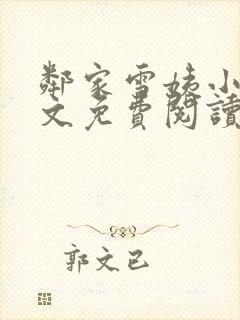 鄰家雪姨小
文免費閱讀
郭文已